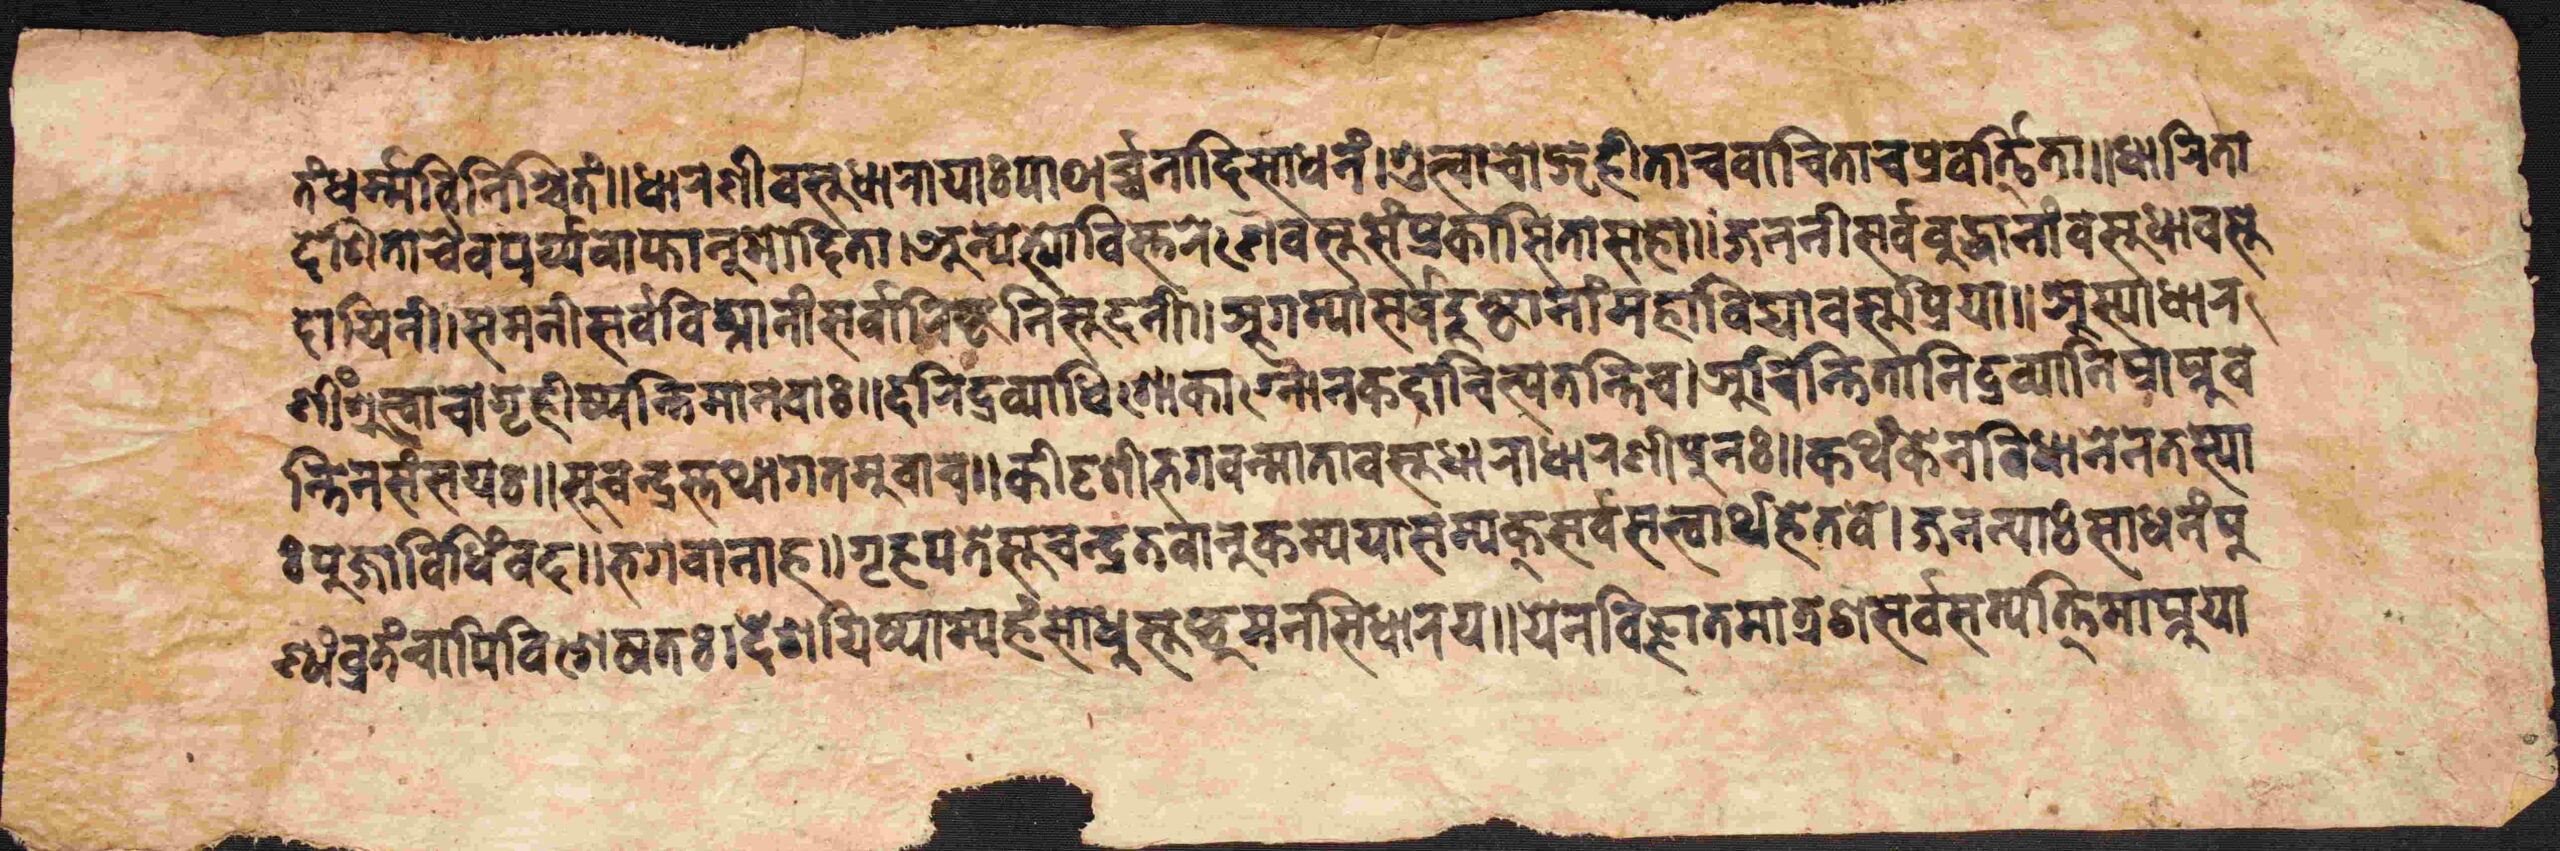 तंधर्म्मविनिश्चितं॥धारणीवसुधारायाःपाठार्च्चनादिसाधनं।श्रुत्वाचोद्गृहीताचवाचिताचप्रवर्त्तिता॥धारिता
देशिताचैवपर्य्यवाप्तानुमोदिता।अन्येह्योविस्तरेणैवसुसंप्रकासितासहा॥जननीसर्वबुद्धानांवसुधावसु
दायिनी।समनीसर्वविघ्नानीसर्वारिष्टनिसुदनी॥अगम्यासर्वदुष्टानांमहाविद्यावसुप्रिया॥अस्याधार
णींश्रुत्वाचोगृहीष्यन्तिमानवाः॥दरिद्रव्याधिशोकाग्नौनकदाचित्पतन्तिच।अचिन्तितानिद्रव्यानिप्राप्नुव
न्तिनसंसयः॥सुचन्द्रस्तथागतमुवाच॥कीदृशीभगवन्मातावसुधाराधारणीपुनः॥कथंकेनविधानेनतस्या
ःपुजाविधिंवद॥भगवानाह॥गृहपतेसुचन्द्रतवानुकम्पयासम्यक्सर्वसत्त्वार्थहेतवे।जनन्याःसाधनंपु
ण्यंव्रतंचापिविशेषतः।देशयिष्याम्यहंसाधुसुष्ठुमनसिधारय॥येनविज्ञातमात्रेणसर्वसम्पत्तिमाप्नुया